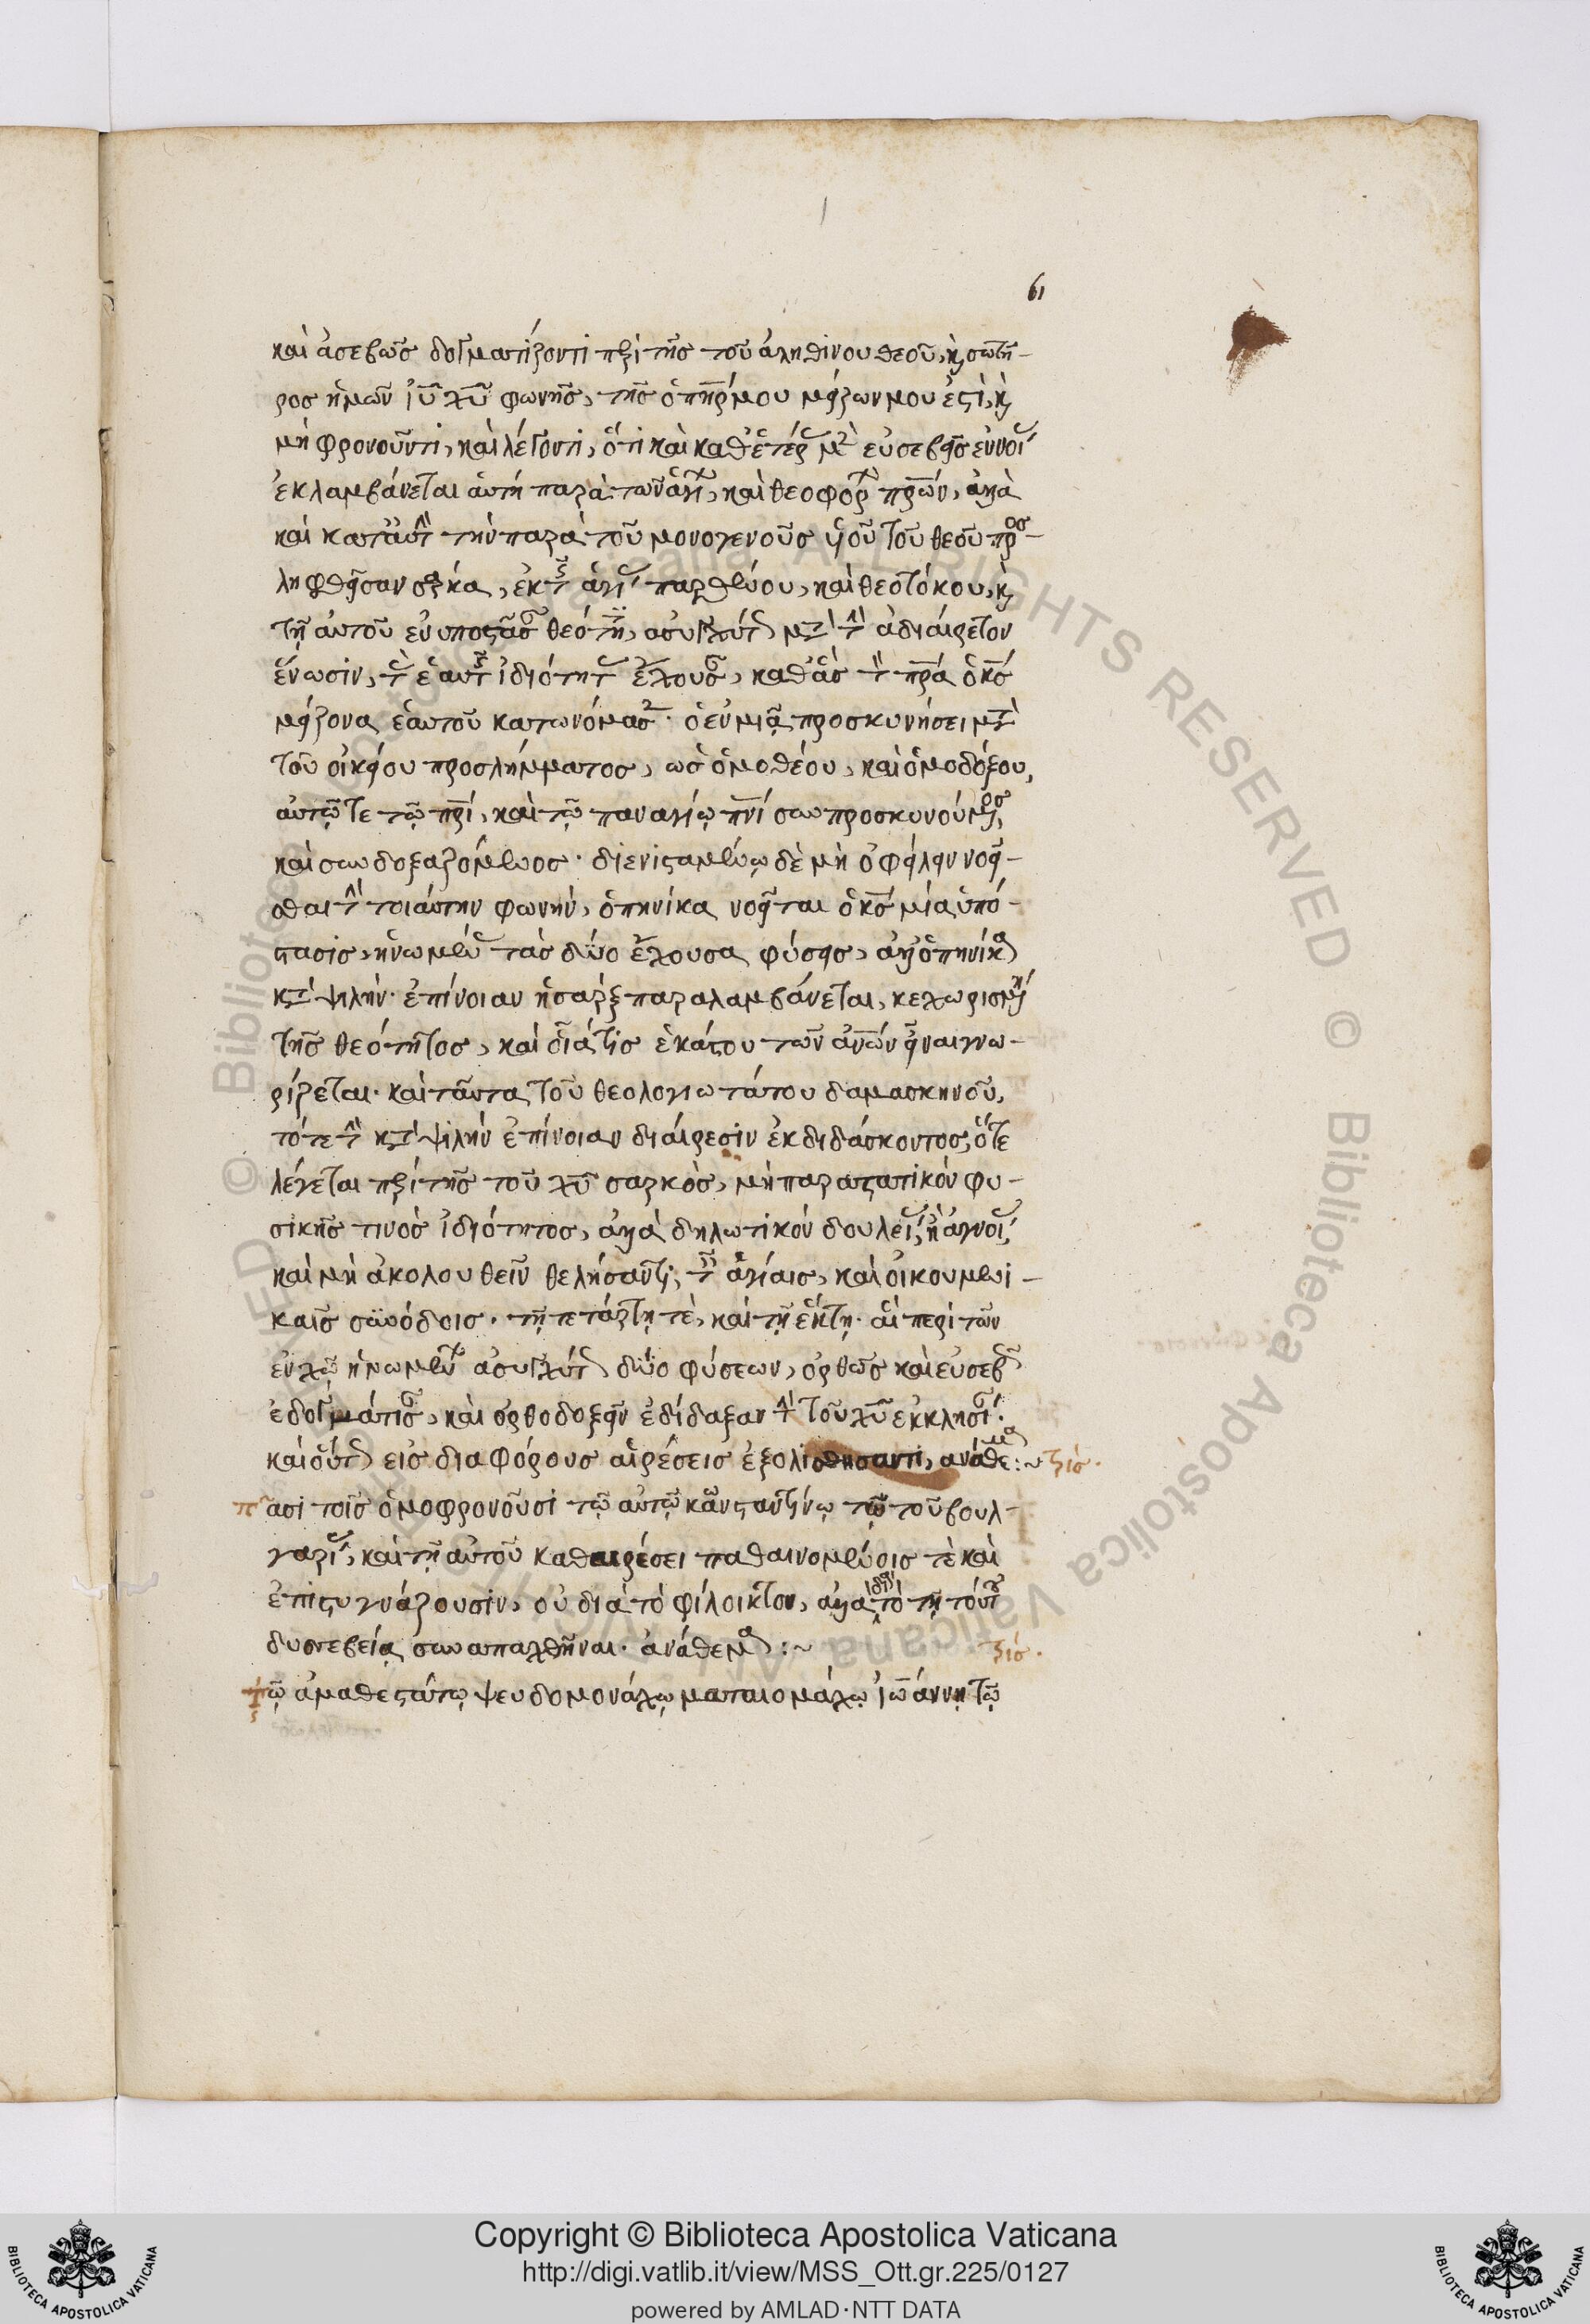 61
καὶ ἀσεβῶς δογματίζοντι περὶ τῆς τοῦ ἀληθινοῦ θεοῦ, καὶ σωτῆ-
ρος ἡμῶν ἰυ χυ φωνῆς, τῆς ὁ πηρ μου μείζων μου ἐστὶ, καὶ
μὴ φρονοῦντι, καὶ λέγοντι, ὅτι καὶ καθ' ἑτέρας μὲν εὐσεβεῖς ἐννοίας
ἐκλαμβάνεται αὐτὴ παρὰ τῶν ἁγίων, καὶ θεοφόρων πρων, ἀλλὰ
καὶ κατ' αὐτὴν τὴν παρὰ τοῦ μονογενοῦς υἱοῦ τοῦ θεοῦ προσ-
ληφθεῖσαν σάρκα, ἐκ τῆς ἁγίας παρθένου, καὶ θεοτόκου, καὶ
τῇ αὐτοῦ ἐνυποστᾶσαν θεότητι, ἀσυγχύτως μετὰ τὴν ἀδιαίρετον
ἕνωσιν, τὰς ἑαυτῆς ἰδιότητας ἔχουσαν, καθ' ἃς τὸν πρα ὁ κς
μείζονα ἑαυτοῦ κατωνόμασεν· ὁ ἐν μιᾷ προσκυνήσει μετὰ
τοῦ οἰκείου προσλήμματος, ὡς ὁμοθέου, καὶ ὁμοδόξου,
αὐτῷ τε τῷ πρι, καὶ τῷ παναγίῳ πνι συνπροσκυνούμενος,
καὶ συνδοξαζόμενος· διενισταμένῳ δὲ μὴ ὀφείλειν νοεῖ-
σθαι τὴν τοιαύτην φωνὴν, ὁπηνίκα νοεῖται ὁ κς μία ὑπό-
στασις, ἡνωμένας τὰς δύο ἔχουσα φύσεις, ἀλλ' ὁπηνίκα
κατὰ ψιλὴν ἐπίνοιαν ἡ σὰρξ παραλαμβάνεται, κεχωρισμένη
τῆς θεότητος, καὶ οἷά τις ἑκάστου τῶν ανων εἶναι γνω-
ρίζεται· καὶ ταῦτα τοῦ θεολογιωτάτου δαμασκηνοῦ,
τότε τὴν κατὰ ψιλὴν ἐπίνοιαν διαίρεσιν ἐκδιδάσκοντος, ὅτε
λέγεται περὶ τῆς τοῦ χυ σαρκὸς, μὴ παραστατικὸν φυ-
σικῆς τινὸς ἰδιότητος, ἀλλὰ δηλωτικὸν δουλείας, ἢ ἀγνοίας,
καὶ μὴ ἀκολουθεῖν θελήσαντι, ταῖς ἁγίαις, καὶ οἰκουμενι-
καῖς συνόδοις· τῇ τετάρτῃ τὲ, καὶ τῇ ἕκτῃ· αἳ περὶ τῶν
ἐν χω ἡνωμένων ἀσυγχύτως δύο φύσεων, ὀρθῶς καὶ εὐσεβῶς
ἐδογμάτισαν, καὶ ὀρθοδοξεῖν ἐδίδαξαν τὴν τοῦ χυ ἐκκλησίαν·
καὶ οὕτως εἰς διαφόρους αἱρέσεις ἐξολισθήσαντι, ἀνάθεμα:~ τρίς·
πᾶσι τοῖς ὁμοφρονοῦσι τῷ αὐτῷ κωνσταντίνῳ τῷ τοῦ βουλ-
γαρίας, καὶ τῇ αὐτοῦ καθαιρέσει παθαινομένοις τὲ καὶ
ἐπιστυγνάζουσιν, οὐ διὰ τὸ φίλοικτον, ἀλλὰ διὰ τὸ τῇ τούτου
δυσσεβείᾳ συναπαχθῆναι· ἀνάθεμα:~ τρίς·
τῷ ἀμαθεστάτῳ ψευδομονάχῳ ματαιομάχῳ ἰωάννῃ τῷ
Copyright © Biblioteca Apostolica Vaticana
http://digi.vatlib.it/view/MSS_Ott.gr.225/0127
powered by AMLAD·NTT DATA